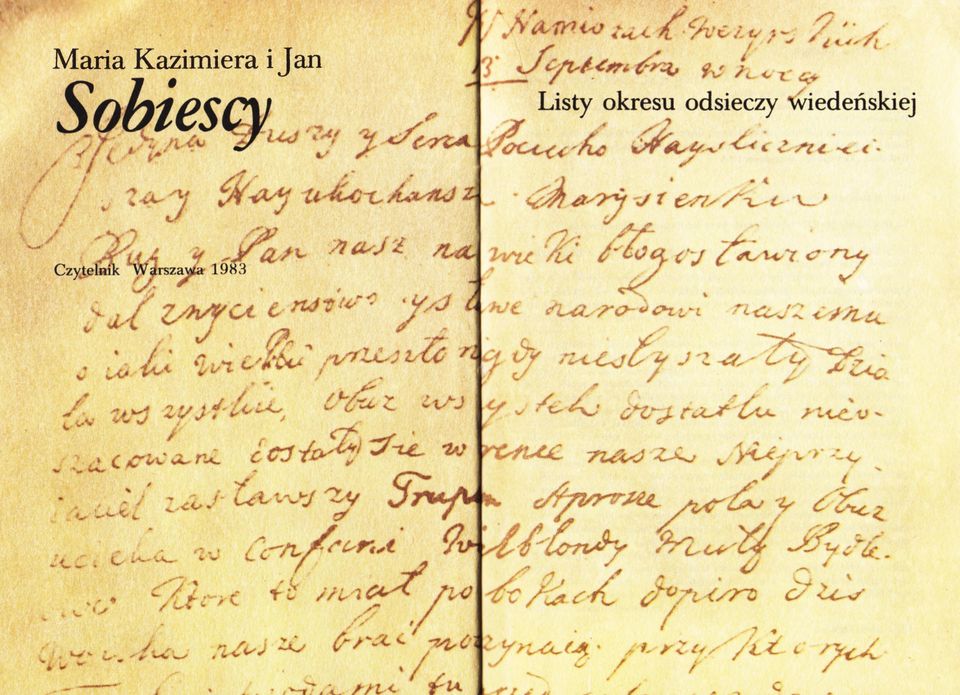 Maria Kazimiera i Jan
Sobiescy
Listy okresu odsieczy wiedeńskiej
Czytelnik Warszawa 1983
W Namiotach Wezyrskich
Septembra w nocy
Jedyna Duszy y Serca Pociecho Naysliczniei
szay Nayukochansza Marysienku
Pan nasz na wieki błogosławiony
dał narodowi naszemu
o iakiei wieki przeszłe nigdy niesłyszały Dzia
ła wszystkie, Oboz wszystek dostatki nieo-
szacowane dostały sie w rence nasze Nieprzy-
iaciel zasławszy Trupem Aprosze pola y Oboz
ucieka w Confusii Wielblondy Muły Bydle-
Ktore to miał po bokach dopiro dzis
Woiska nasze brac poczynaią przy Ktorych